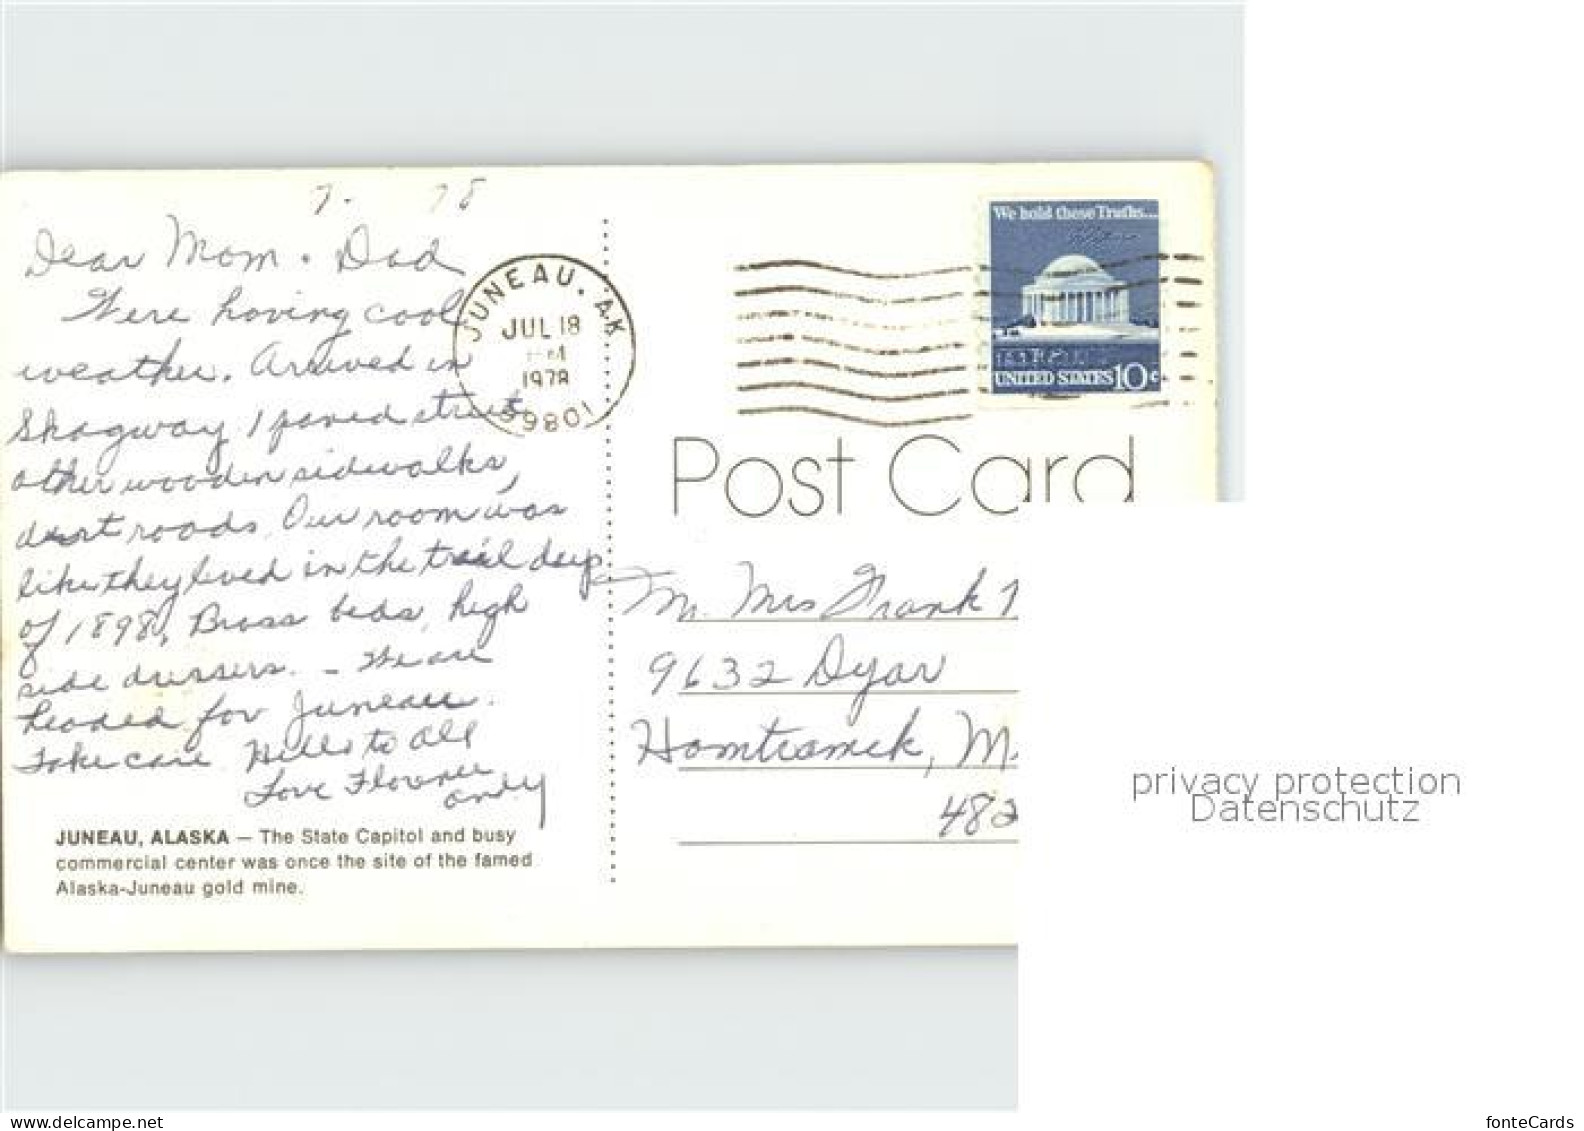 7. 78
Dear Mom. Dad
Were having cool
weather. Arrived in
Skagway 1 paved street
other wooden sidewalks,
dirt roads. Our room was
like they lived in the trail days
of 1898. Brass beds, high
side dressers. - We are
headed for Juneau.
Take care Hello to all
Love Florence
Andy
JUNEAU, ALASKA — The State Capitol and busy
commercial center was once the site of the famed
Alaska-Juneau gold mine.
JUNEAU, AK
JUL 18
PM
1978
99801
We hold these Truths...
UNITED STATES 10c
Post Card
Mr. Mrs Frank
9632 Dyar
Homtramck, M
482
privacy protection
Datenschutz
www.delcampe.net
fonteCards